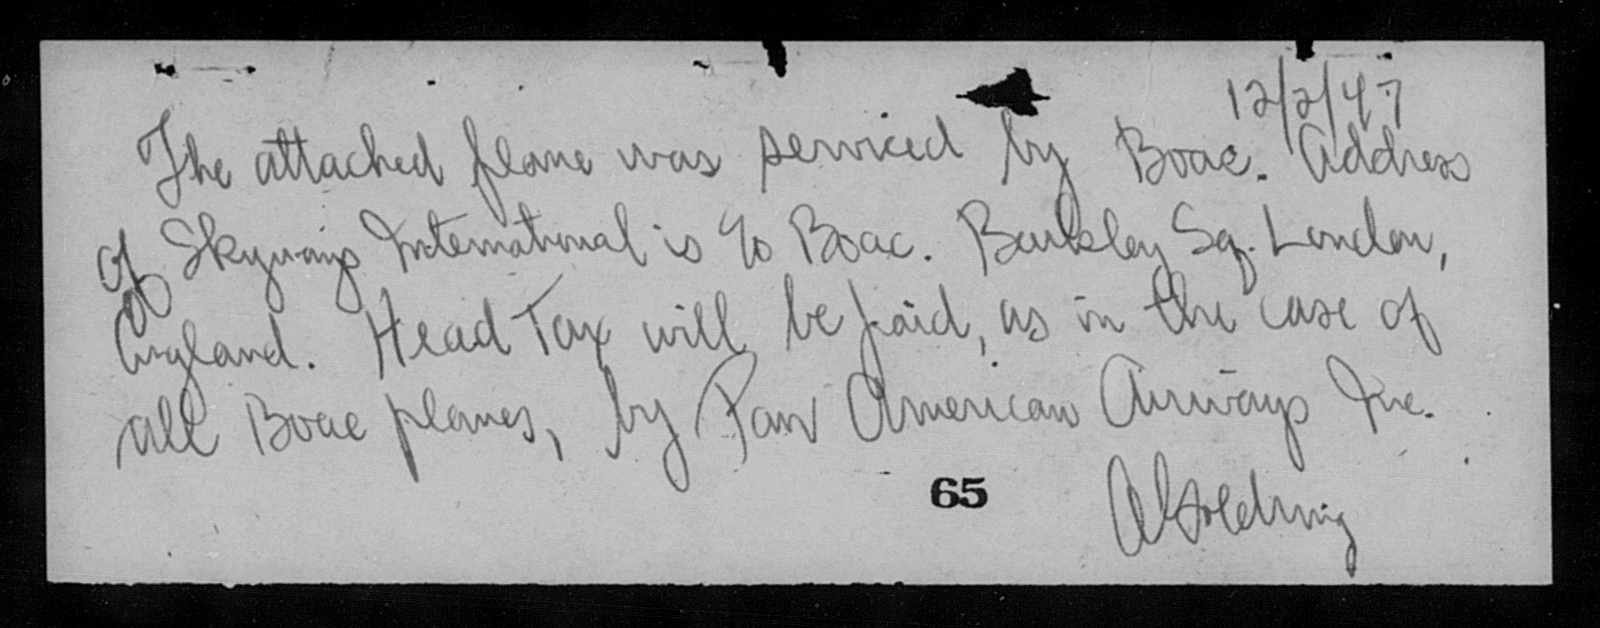 12/2/47
The attached plane was serviced by Boac. Address
of Skyways International is % Boac. Berkley Sq. London,
England. Head Tax will be paid, as in the case of
all Boac planes, by Pan American Airways Inc.
65